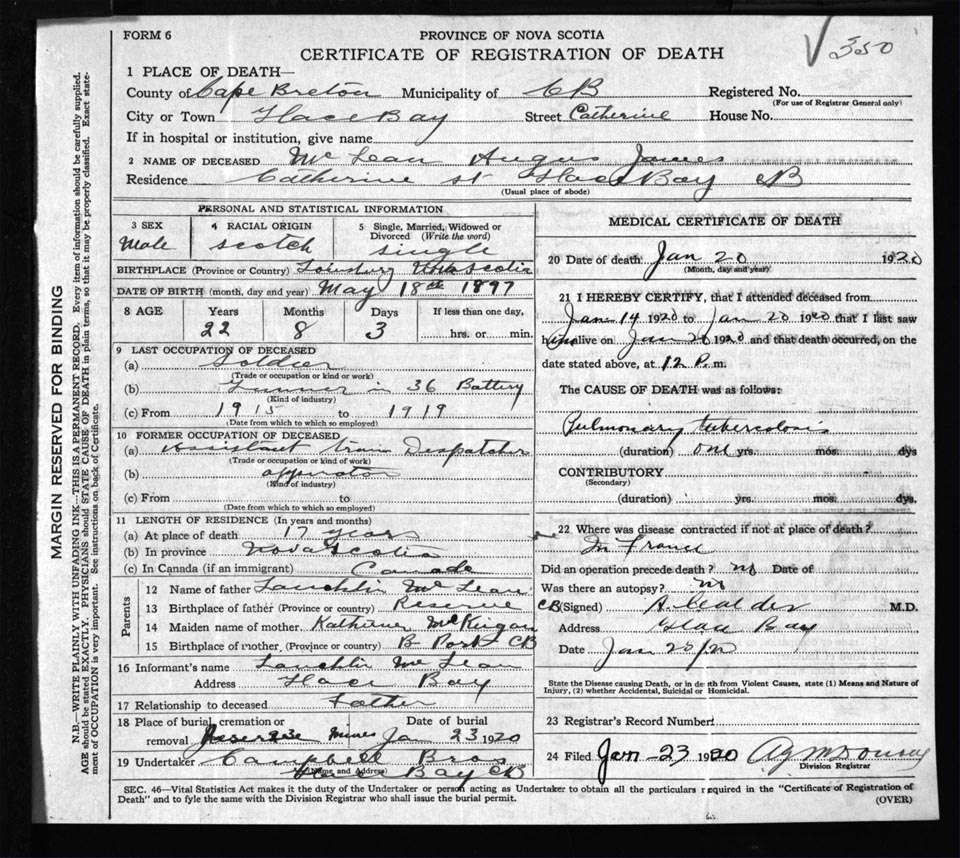 FORM 6
PROVINCE OF NOVA SCOTIA
350
CERTIFICATE OF REGISTRATION OF DEATH
1 PLACE OF DEATH—
County of Cape Breton Municipality of CB Registered No.
(For use of Registrar General only)
City or Town Glace Bay Street Catherine House No.
If in hospital or institution, give name
2 NAME OF DECEASED McLean Angus James
Residence Catherine st Glace Bay CB
(Usual place of abode)
PERSONAL AND STATISTICAL INFORMATION
3 SEX 4 RACIAL ORIGIN 5 Single, Married, Widowed or Divorced (Write the word)
Male Scotch Single
BIRTHPLACE (Province or Country) Louisburg Nova Scotia
DATE OF BIRTH (month, day and year) May 18th 1897
8 AGE Years Months Days If less than one day,
22 8 3 hrs. or min.
9 LAST OCCUPATION OF DECEASED
(a) Soldier
(Trade or occupation or kind or work)
(b) Gunner in 36 Battery
(Kind of industry)
(c) From 1915 to 1919
(Date from which to which so employed)
10 FORMER OCCUPATION OF DECEASED
(a) Assistant train Despatcher
(Trade or occupation or kind of work)
(b)
(Kind of industry)
(c) From to
(Date from which to which so employed)
11 LENGTH OF RESIDENCE (In years and months)
(a) At place of death 17 years
(b) In province Nova Scotia
(c) In Canada (if an immigrant) Canada
Parents
12 Name of father Lauchlin McLean
13 Birthplace of father (Province or country) Reserve CB
14 Maiden name of mother Katherine McKeigan
15 Birthplace of mother (Province or country) B Port CB
16 Informant's name Lauchlin McLean
Address Glace Bay
17 Relationship to deceased Father
18 Place of burial, cremation or removal Reserve Mines
Date of burial Jan 23 1920
19 Undertaker Campbell Bros
(Name and Address) Glace Bay CB
MEDICAL CERTIFICATE OF DEATH
20 Date of death Jan 20 1920
(Month, day and year)
21 I HEREBY CERTIFY, that I attended deceased from
Jan 14 1920 to Jan 20 1920 that I last saw
him alive on Jan 20 1920 and that death occurred, on the
date stated above, at 12 P.m.
The CAUSE OF DEATH was as follows:
Pulmonary tuberculosis
(duration) one yrs. mos. dys
CONTRIBUTORY
(Secondary)
(duration) yrs. mos. dys.
22 Where was disease contracted if not at place of death?
In France
Did an operation precede death? no Date of
Was there an autopsy? no
(Signed) A. Calder M.D.
Address Glace Bay
Date Jan 20/20
State the Disease causing Death, or in death from Violent Causes, state (1) Means and Nature of
Injury, (2) whether Accidental, Suicidal or Homicidal.
23 Registrar's Record Number
24 Filed Jan-23 1920
Division Registrar
SEC. 46—Vital Statistics Act makes it the duty of the Undertaker or person acting as Undertaker to obtain all the particulars required in the "Certificate of Registration of
Death" and to fyle the same with the Division Registrar who shall issue the burial permit.
(OVER)
MARGIN RESERVED FOR BINDING
N.B.—WRITE PLAINLY WITH UNFADING INK—THIS IS A PERMANENT RECORD. Every item of information should be carefully supplied.
AGE should be stated EXACTLY. PHYSICIANS should STATE CAUSE OF DEATH in plain terms, so that it may be properly classified. Exact state-
ment of OCCUPATION is very important. See instructions on back of Certificate.